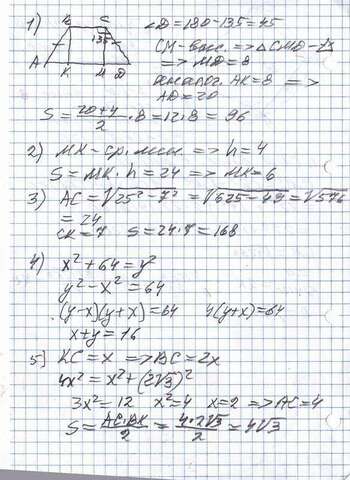 1) B C ∠D=180-135=45
135° CM-выс. => △CMD-
A K M D => MD=8
аналог. AK=8 =>
AD=20
S = (20+4)/2 · 8 = 12·8 = 96
2) MK-ср. лин. => h=4
S = MK·h = 24 => MK=6
3) AC = √(25²-7²) = √(625-49) = √576
= 24
CK=7 S=24·7=168
4) x²+64=y²
y²-x²=64
(y-x)(y+x)=64 4(y+x)=64
x+y=16
5) KC=x => BC=2x
4x²=x²+(2√3)²
3x²=12 x²=4 x=2 => AC=4
S = AC·BK/2 = 4·2√3/2 = 4√3